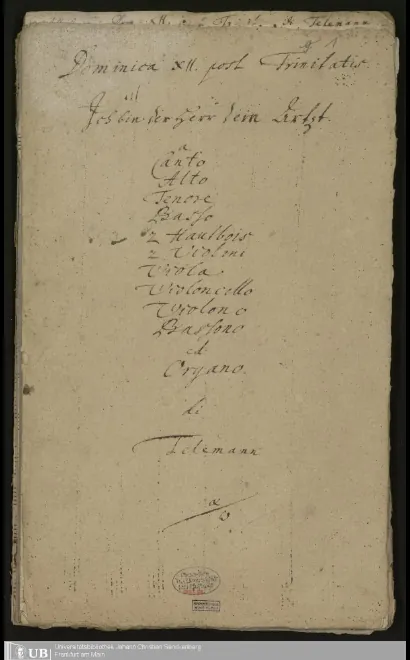 Dominica XII. post Trinitatis
Ich bin der Herr dein Artzt.
a
Canto
Alto
Tenore
Basso
2 Hautbois
2 Violini
Viola
Violoncello
Violono
Bassono
ed
Organo.
di
Telemann
UB Universitätsbibliothek Johann Christian Senckenberg
Frankfurt am Main